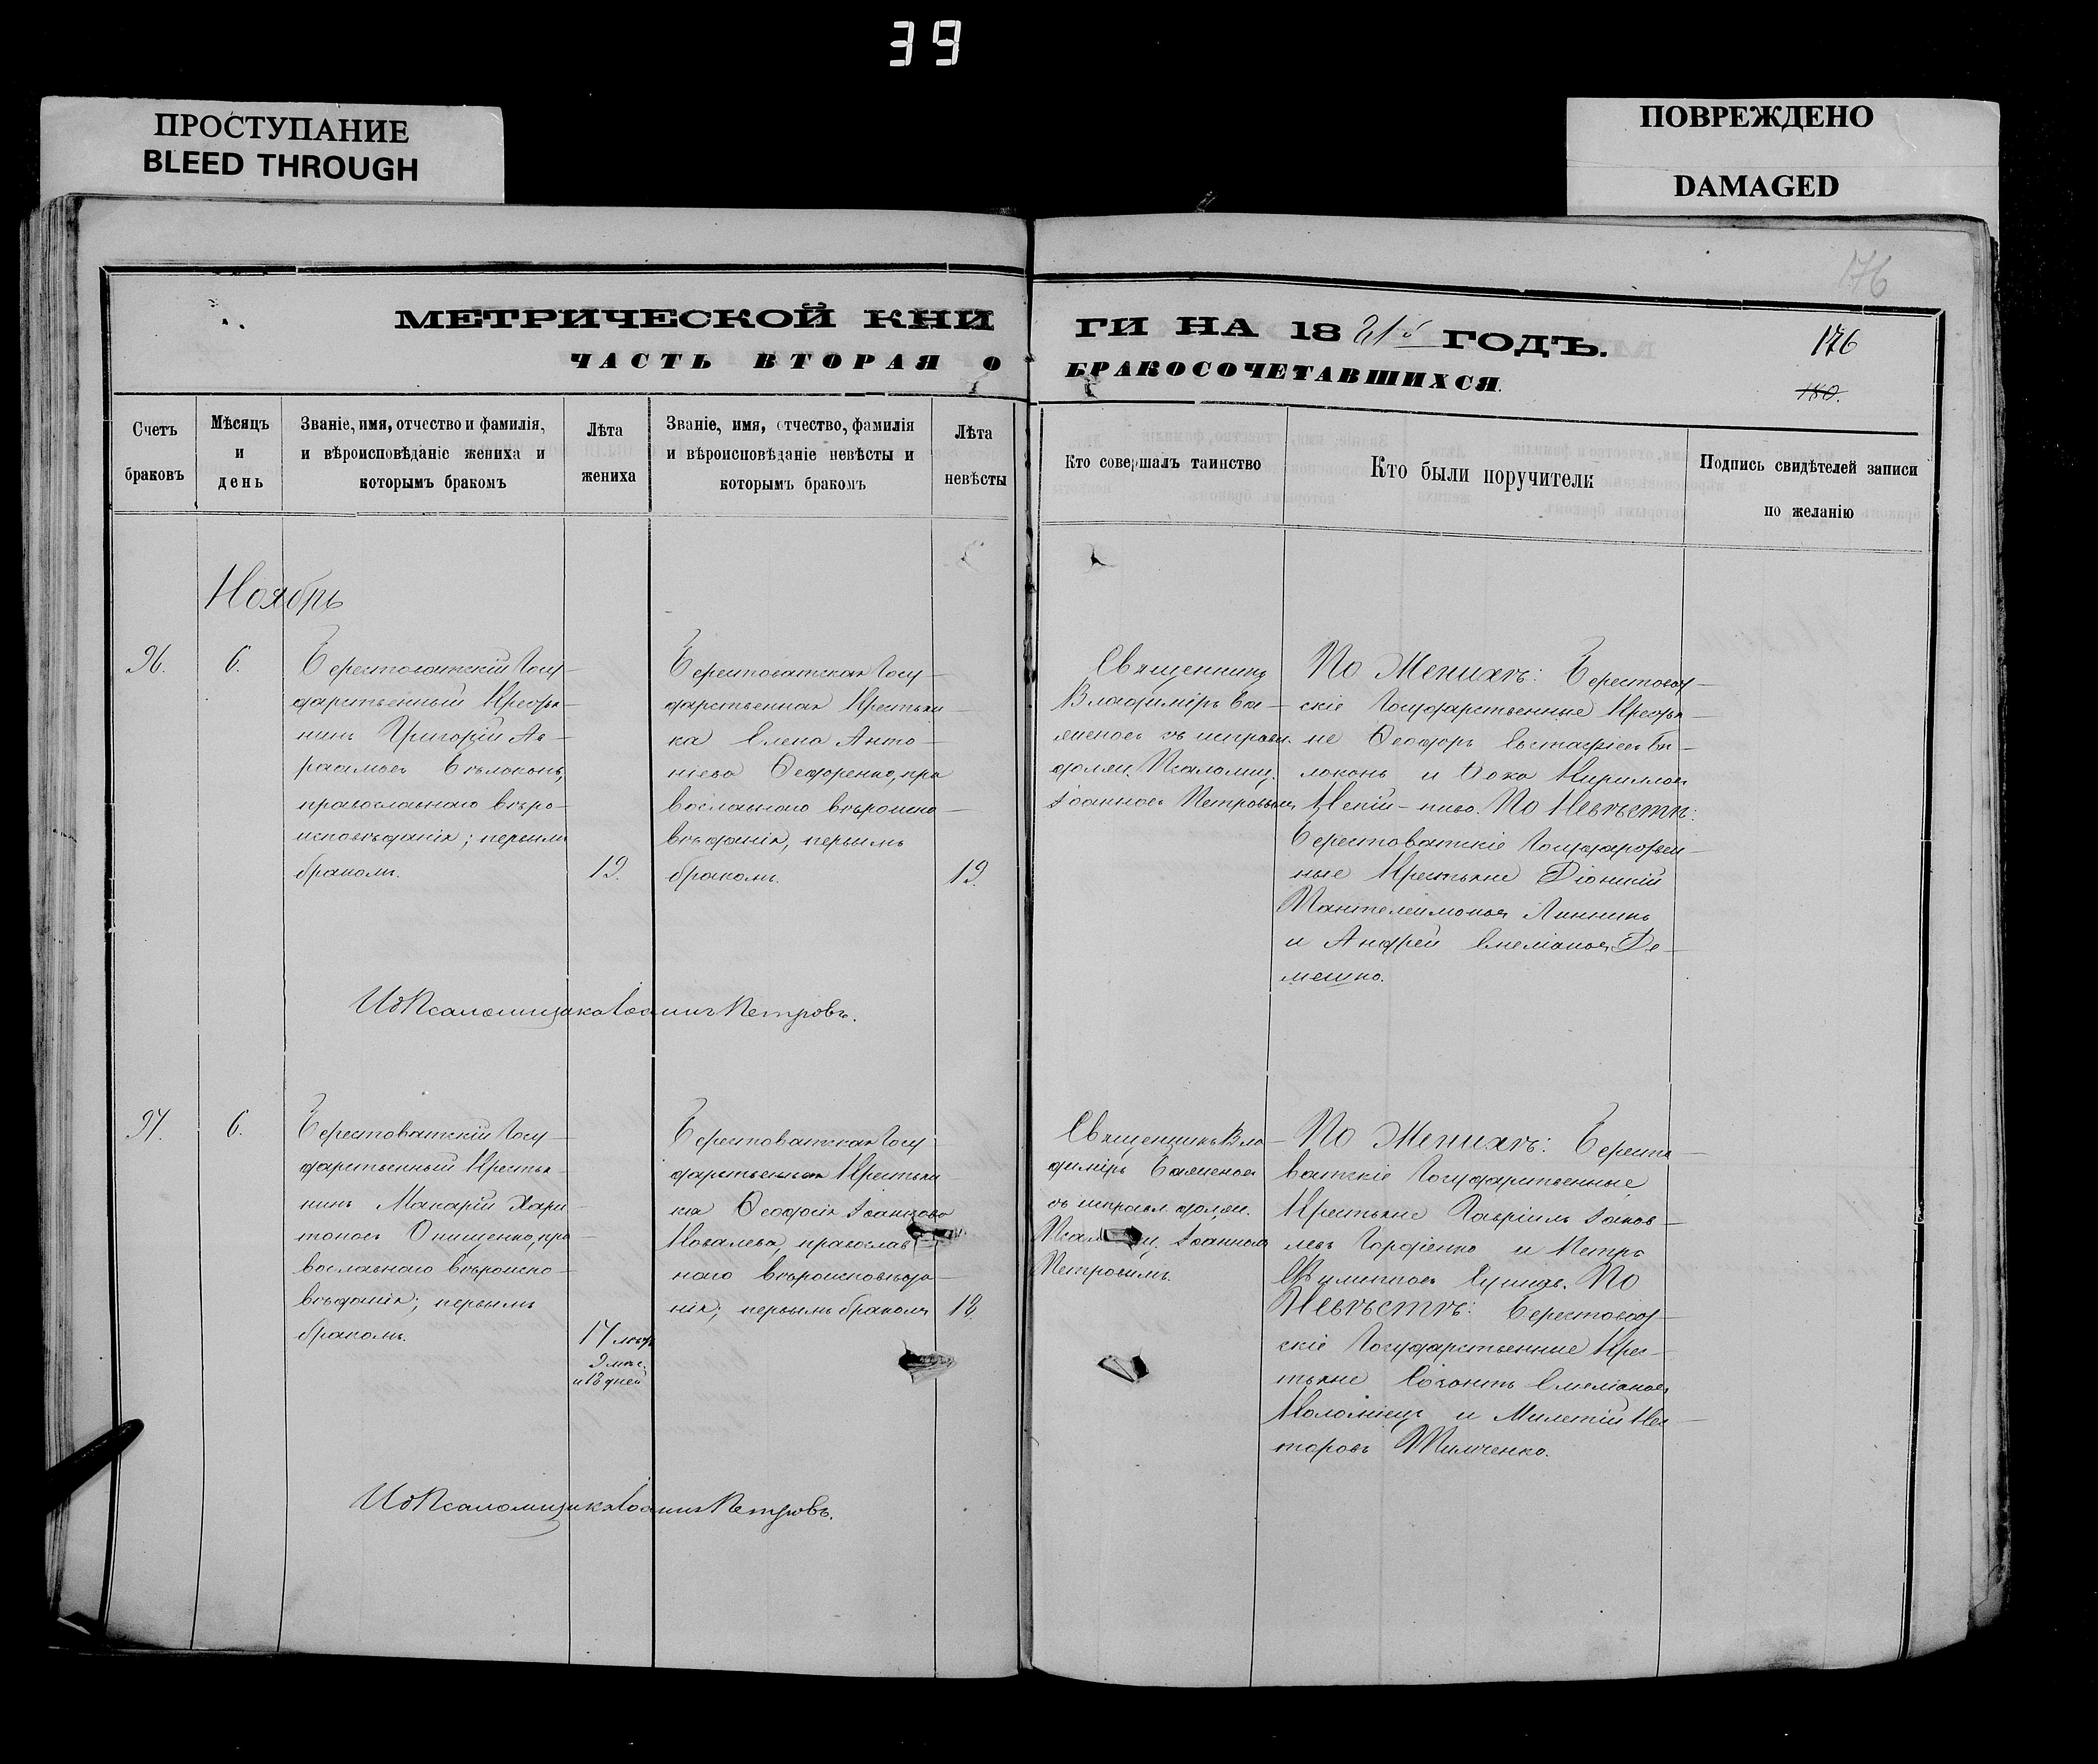 39
ПРОСТУПАНИЕ
BLEED THROUGH
ПОВРЕЖДЕНО
DAMAGED
176
МЕТРИЧЕСКОЙ КНИГИ НА 1881й ГОДЪ.
176
ЧАСТЬ ВТОРАЯ О БРАКОСОЧЕТАВШИХСЯ.
180.
Счетъ
браковъ
Мѣсяцъ
и
день
Званіе, имя, отчество и фамилія,
и вѣроисповѣданіе жениха и
которымъ бракомъ
Лѣта
жениха
Званіе, имя, отчество, фамилія
и вѣроисповѣданіе невѣсты и
которымъ бракомъ
Лѣта
невѣсты
Кто совершалъ таинство
Кто были поручители
Подпись свидѣтелей записи
по желанію
Ноябрь
96.
6.
Берестоватскій Госу-
дарственный Крестья-
нинъ Григорій Ав-
раамовъ Бѣлоконь,
православнаго вѣро-
исповѣданія; первымъ
бракомъ.
19.
Берестоватская Госу-
дарственная Крестьян-
ка Елена Анто-
ніева Федоренко, пра
вославнаго вѣроиспо-
вѣданія, первымъ
бракомъ.
19.
Священникъ
Владиміръ Ба-
женовъ съ исправл.
должн. Псаломщ.
Іоанномъ Петровымъ
По Женихѣ: Берестоват-
скіе Государственные Крестья-
не Ѳеодоръ Евстафіевъ Бѣ-
локонь и Фока Кирилловъ
По Невѣстѣ:
Берестоватскіе Государствен-
ные Крестьяне Діонисій
Пантелеимоновъ Линникъ
и Андрей Емеліановъ Де-
мешко.
ИдПсаломщика Іоаннъ Петровъ.
97.
6.
Берестоватскій Госу-
дарственный Крестья-
нинъ Макарій Хари-
тоновъ Онищенко, пра-
вославнаго вѣроиспо-
вѣданія; первымъ
бракомъ.
17 лѣтъ
9 мѣс.
и 18 дней
Берестоватская Госу-
дарственная Крестьян-
ка Ѳеодосія Іоаннова
Ковалева, православ
наго вѣроисповѣда-
нія; первымъ бракомъ
18.
Священникъ Вла-
диміръ Баженовъ
съ исправл. должн.
Іоанномъ
Петровымъ.
По Женихѣ: Бересто-
ватскіе Государственные
Крестьяне Гавріилъ Іаков-
левъ Гордіенко и Петръ
Филипповъ По
Невѣстѣ: Берестоват-
скіе Государственные Крес-
тьяне Созонтъ Емеліановъ
Коломіецъ и Милетій Нес-
торовъ Тимченко.
ИдПсаломщика Іоаннъ Петровъ.